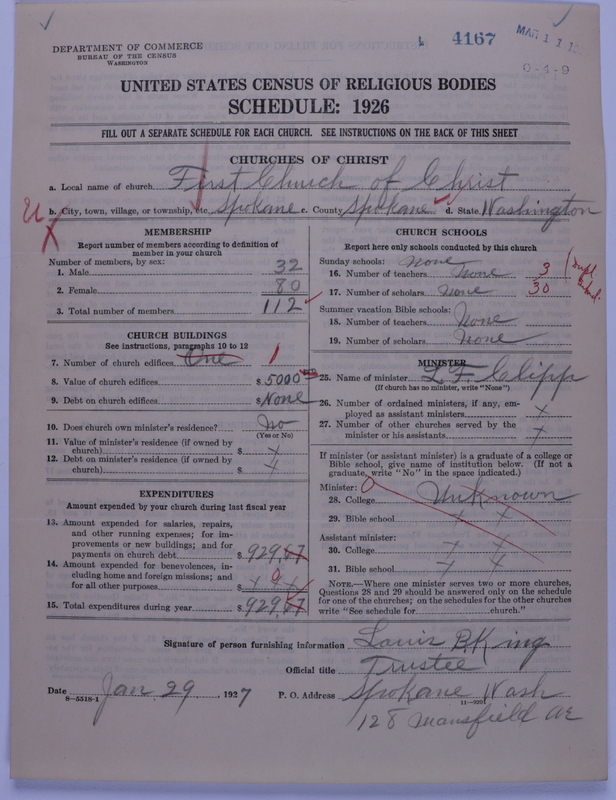 4167
MAR 11
0-4-9
DEPARTMENT OF COMMERCE
BUREAU OF THE CENSUS
WASHINGTON
UNITED STATES CENSUS OF RELIGIOUS BODIES
SCHEDULE: 1926
FILL OUT A SEPARATE SCHEDULE FOR EACH CHURCH. SEE INSTRUCTIONS ON THE BACK OF THIS SHEET
CHURCHES OF CHRIST
a. Local name of church First Church of Christ
b. City, town, village, or township, etc. Spokane c. County Spokane d. State Washington
MEMBERSHIP
Report number of members according to definition of
member in your church
Number of members, by sex:
1. Male 32
2. Female 80
3. Total number of members 112
CHURCH BUILDINGS
See instructions, paragraphs 10 to 12
7. Number of church edifices One 1
8. Value of church edifices $ 5000
9. Debt on church edifices $ None
10. Does church own minister's residence? No
(Yes or No)
11. Value of minister's residence (if owned by
church) $ x
12. Debt on minister's residence (if owned by
church) $ x
EXPENDITURES
Amount expended by your church during last fiscal year
13. Amount expended for salaries, repairs,
and other running expenses; for im-
provements or new buildings; and for
payments on church debt $ 929.67
14. Amount expended for benevolences, in-
cluding home and foreign missions; and
for all other purposes $ x 0 x
15. Total expenditures during year $ 929.67
CHURCH SCHOOLS
Report here only schools conducted by this church
Sunday schools: None
16. Number of teachers None 3
17. Number of scholars None 30
Summer vacation Bible schools:
18. Number of teachers None
19. Number of scholars None
MINISTER
25. Name of minister L. F. Clipp
(If church has no minister, write "None")
26. Number of ordained ministers, if any, em-
ployed as assistant ministers x
27. Number of other churches served by the
minister or his assistants x
If minister (or assistant minister) is a graduate of a college or
Bible school, give name of institution below. (If not a
graduate, write "No" in the space indicated.)
Minister: 0
28. College Unknown
29. Bible school x x
Assistant minister:
30. College x x
31. Bible school x x
NOTE.—Where one minister serves two or more churches,
Questions 28 and 29 should be answered only on the schedule
for one of the churches; on the schedules for the other churches
write "See schedule for church."
Signature of person furnishing information Louis B King
Official title Trustee
Date Jan 29, 1927 P. O. Address Spokane Wash
8—5518-1 11—9201
128 Mansfield Av